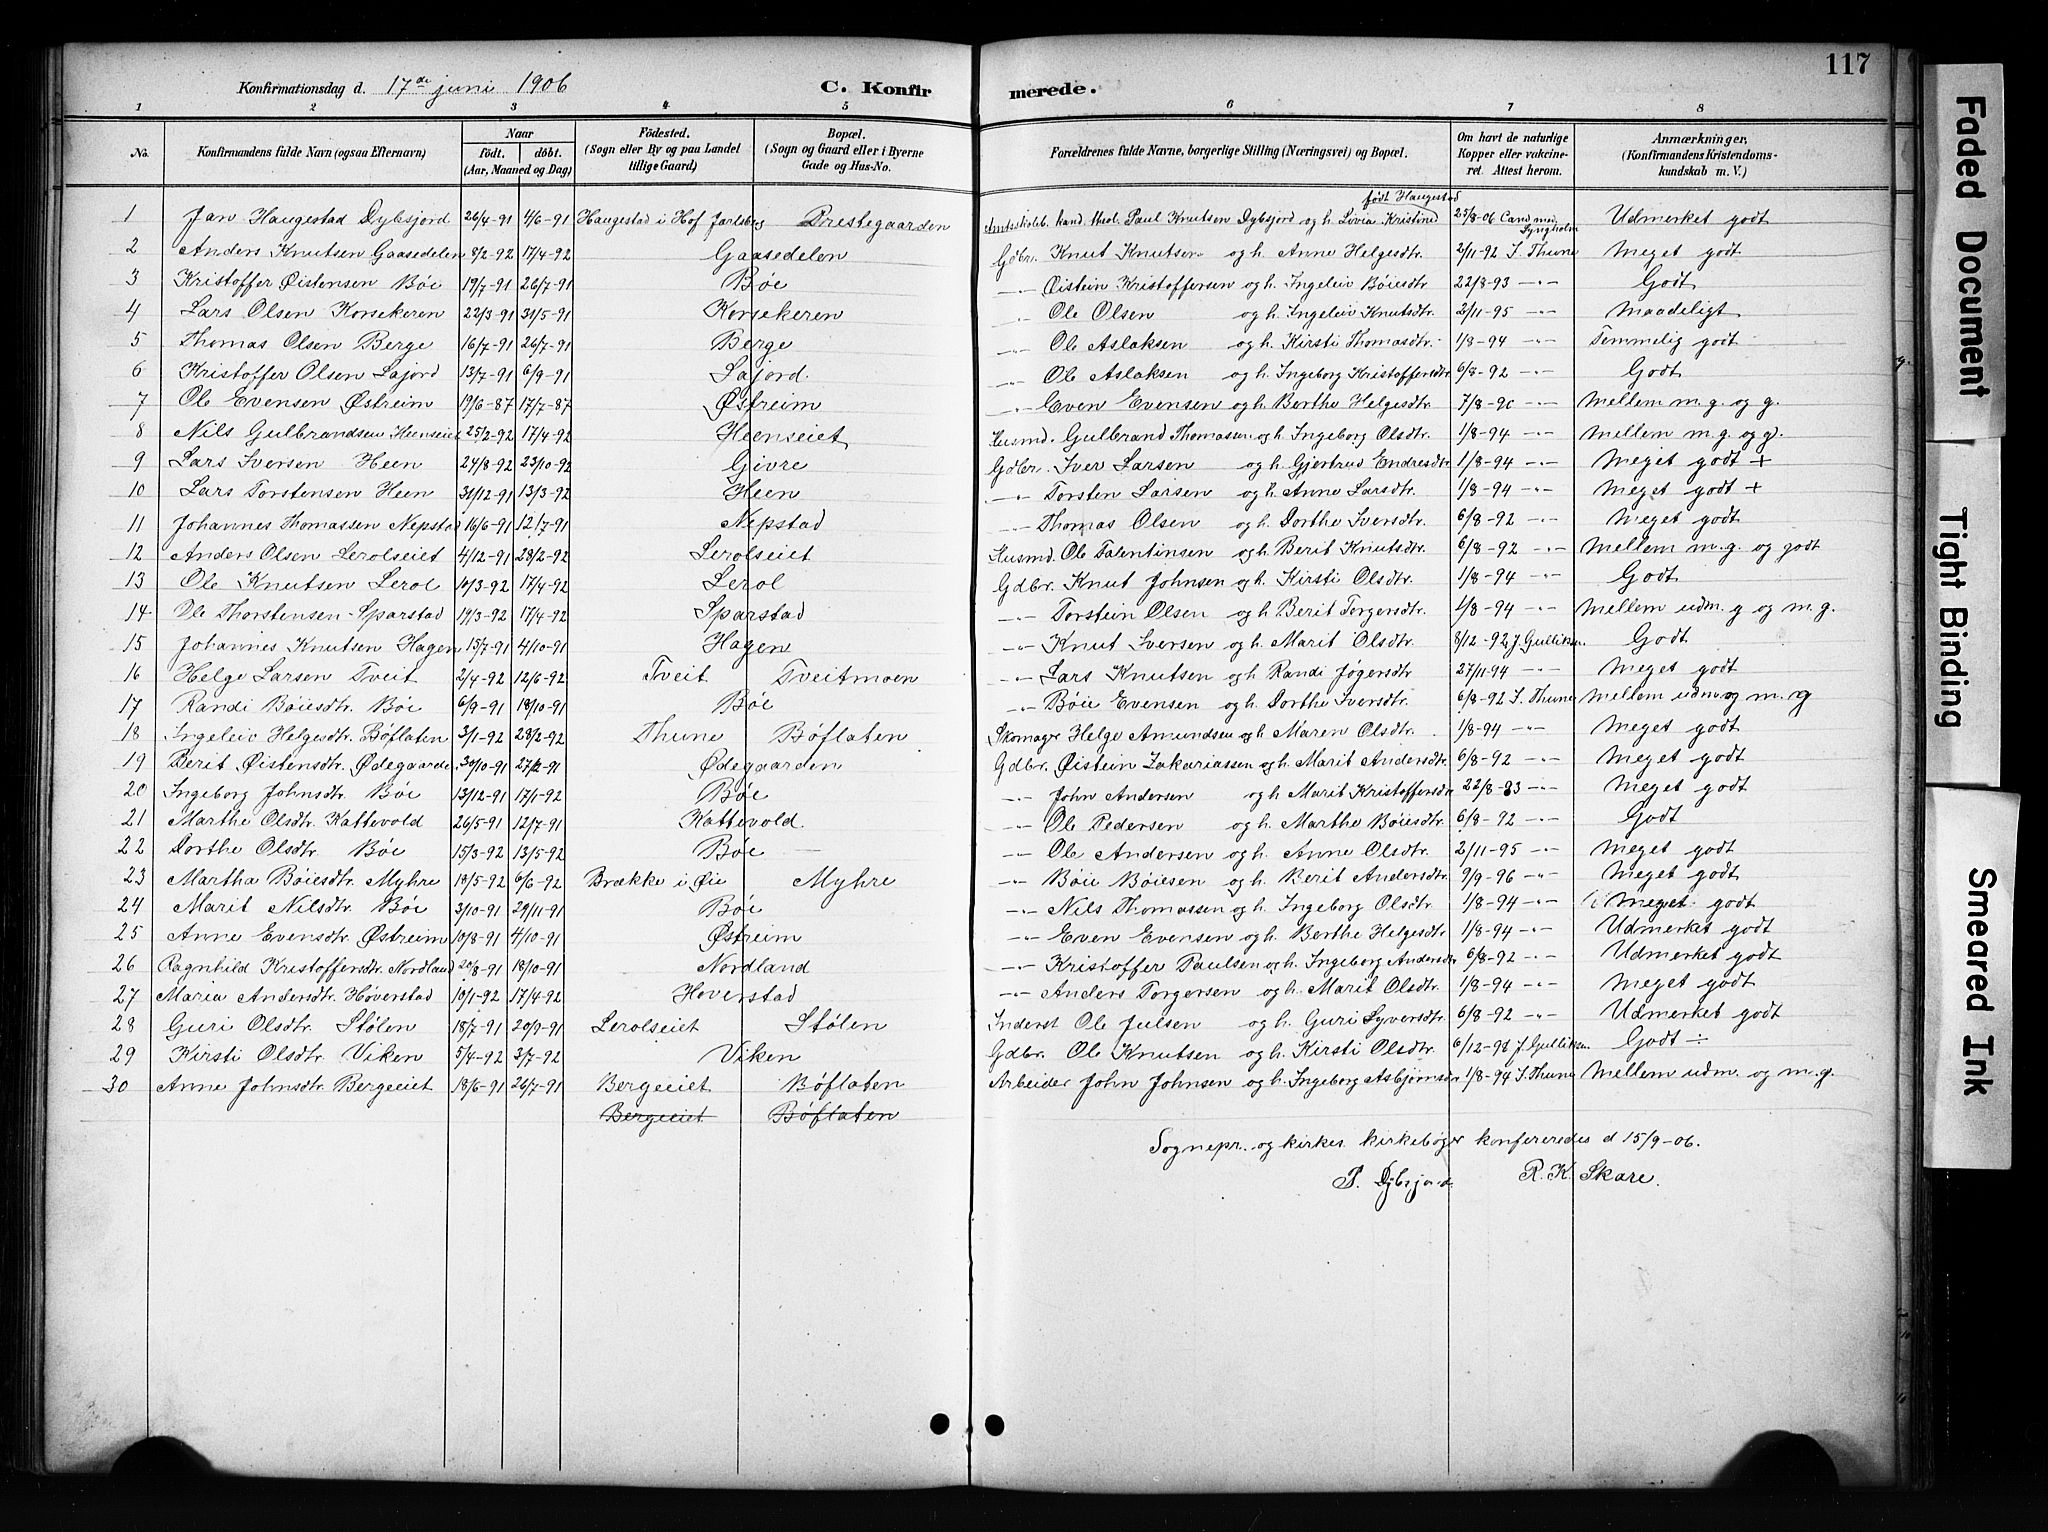 117
Konfirmationsdag d. 17de juni 1906 C. Konfirmerede.
1 2 3 4 5 6 7 8
No. Konfirmandens fulde Navn (ogsaa Efternavn) Naar født. døbt. (Aar, Maaned og Dag) Fødested. (Sogn eller By og paa Landet tillige Gaard) Bopæl. (Sogn og Gaard eller i Byerne Gade og Hus-No. Forældrenes fulde Navne, borgerlige Stilling (Næringsvei) og Bopæl. Om havt de naturlige Kopper eller vakcineret. Attest herom. Anmærkninger, (Konfirmandens Kristendomskundskab m. V.)
født Haugestad
1 Jan Haugestad Dybsjord 26/4-91 4/6-91 Haugestad i Hof Jarlsberg Prestegaarden Paul Knutsen Dybsjord og h. Livia Kristine 25/8-06 Cand med Lyngholm Udmerket godt
2 Anders Knutsen Gaasedelen 8/2-92 17/4-92 Gaasedelen Gdbr. Knut Knutsen og h. Anne Helgesdtr 2/11-92 S. Thune Meget godt
3 Kristoffer Øistensen Bøe 19/7-91 26/7-91 Bøe -"- Øistein Kristoffersen og h. Ingeleiv Bøiesdtr 22/8-93 -"- Godt
4 Lars Olsen Korsekeren 22/3-91 31/5-91 Korsekeren -"- Ole Olsen og h. Ingeleiv Knutsdtr. 2/11-95 -"- Maadeligt
5 Thomas Olsen Berge 16/7-91 26/7-91 Berge -"- Ole Aslaksen og h. Kirsti Thomasdtr. 1/8-94 -"- Temmelig godt
6 Kristoffer Olsen Lajord 13/7-91 6/9-91 Lajord. -"- Ole Aslaksen og h. Ingeborg Kristoffersdtr 6/8-92 -"- Godt
7 Ole Evensen Østreim 19/6-87 17/7-87 Østreim -"- Even Evensen og h. Berthe Helgesdtr. 7/8-90 -"- Mellem m.g. og g.
8 Nils Gulbrandsen Heenseiet 25/2-92 17/4-92 Heenseiet Husmd. Gulbrand Thomassen og h. Ingeborg Olsdtr. 1/8-94 -"- Mellem m.g. og g.
9 Lars Iversen Heen 24/8-92 23/10-92 Givre Gdbr. Iver Larsen og h. Gjertrud Endresdtr 1/8-94 -"- Meget godt +
10 Lars Torstensen Heen 31/12-91 13/3-92 Heen -"- Torsten Larsen og h. Anne Larsdtr. 1/8-94 -"- Meget godt +
11 Johannes Thomassen Nepstad 16/6-91 12/7-91 Nepstad -"- Thomas Olsen og h. Dorthe Iversdtr. 6/8-92 -"- Meget godt
12 Anders Olsen Lerolseiet 4/12-91 28/2-92 Lerolseiet Husmd. Ole Talentinsen og h. Berit Knutsdtr. 6/8-92 -"- Mellem m.g. og godt
13 Ole Knutsen Lerol 10/3-92 17/4-92 Lerol Gdbr. Knut Johnsen og h. Kirsti Olsdtr. 1/8-94 -"- Godt
14 Ole Thorstensen Sparstad 19/3-92 17/4-92 Sparstad -"- Torstein Olsen og h. Berit Torgersdtr. 1/8-94 -"- Mellem udm. g og m.g.
15 Johannes Knutsen Hagen 15/7-91 4/10-91 Hagen -"- Knut Iversen og h. Marit Olsdtr. 8/12-92 J. Gulliksen Godt
16 Helge Larsen Tveit 2/4-92 12/6-92 Tveit Tveitmoen -"- Lars Knutsen og h Randi Jøgersdtr 27/11-94 -"- Meget godt
17 Randi Bøiesdtr. Bøe 6/9-91 18/10-91 Bøe -"- Bøie Evensen og h. Dorthe Iversdtr. 6/8-92 S. Thune Mellem udm. og m. g
18 Ingeleiv Helgesdtr. Bøflaten 3/1-92 28/2-92 Thune Bøflaten Skomager Helge Amundsen og h Maren Olsdtr. 1/8-94 -"- Meget godt
19 Berit Øistensdtr. Ødegaarden 30/10-91 27/12-91 Ødegaarden Gdbr. Øistein Zakariassen og h. Marit Andersdtr. 6/8-92 -"- Meget godt
20 Ingeborg Johnsdtr. Bøe 13/12-91 17/1-92 Bøe -"- John Andersen og h. Marit Kristoffersdtr 22/8-93 -"- Meget godt
21 Marthe Olsdtr. Kattevold 26/5-91 12/7-91 Kattevold. -"- Ole Pedersen og h. Marthe Bøiesdtr. 6/8-92 -"- Godt
22 Dorthe Olsdtr. Bøe 15/3-92 13/5-92 Bøe -"- Ole Andersen og h. Anne Olsdtr. 2/11-95 -"- Meget godt
23 Martha Bøiesdtr. Myhre 18/5-92 6/6-92 Brække i Øie Myhre -"- Bøie Bøiesen og h. Berit Andersdtr. 9/9-96 -"- Meget godt
24 Marit Nilsdtr. Bøe 3/10-91 29/11-91 Bøe -"- Nils Thomassen og h. Ingeborg Olsdtr. 1/8-94 -"- Meget godt
25 Anne Evensdtr. Østreim 10/8-91 4/10-91 Østreim -"- Even Evensen og h. Berthe Helgesdtr 1/8-94 -"- Udmerket godt
26 Ragnhild Kristoffersdtr. Nordland 20/8-91 18/10-91 Nordland -"- Kristoffer Paulsen og h. Ingeborg Andersdtr 6/8-92 -"- Udmerket godt
27 Maria Andersdtr. Høverstad 10/1-92 17/4-92 Hoverstad -"- Anders Torgersen og h. Marit Olsdtr. 1/8-94 -"- Meget godt
28 Guri Olsdtr. Stølen 18/7-91 20/9-91 Lerolseiet Stølen Inderst Ole Julsen og h. Guri Syversdtr. 6/8-92 -"- Udmerket godt
29 Kirsti Olsdtr. Viken 5/4-92 3/7-92 Viken Gdbr. Ole Knutsen og h. Kirsti Olsdtr. 6/12-98 J. Gulliksen Godt ÷
30 Anne Johnsdtr. Bergeeiet 18/6-91 26/7-91 Bergeeiet Bøflaten Arbeider John Johnsen og h. Ingeborg Asbjørnsdtr 1/8-94 S. Thune Mellem udm. og m.g.
Bergeeiet Bøflaten
Sognepr. og kirkes. kirkebøger konfereredes d 15/9-06.
P. Dybsjord. R. K. Skare.
Faded Document
Tight Binding
Smeared Ink